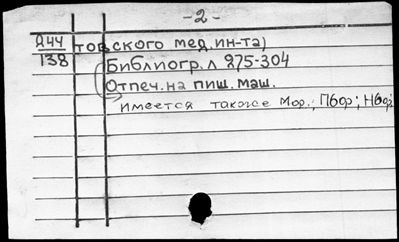 -2-
244 товского мед.ин-та)
138 Библиогр.л 275-304
Отпеч.на пиш.маш.
имеется также Мор.; Пбф; Нбф;